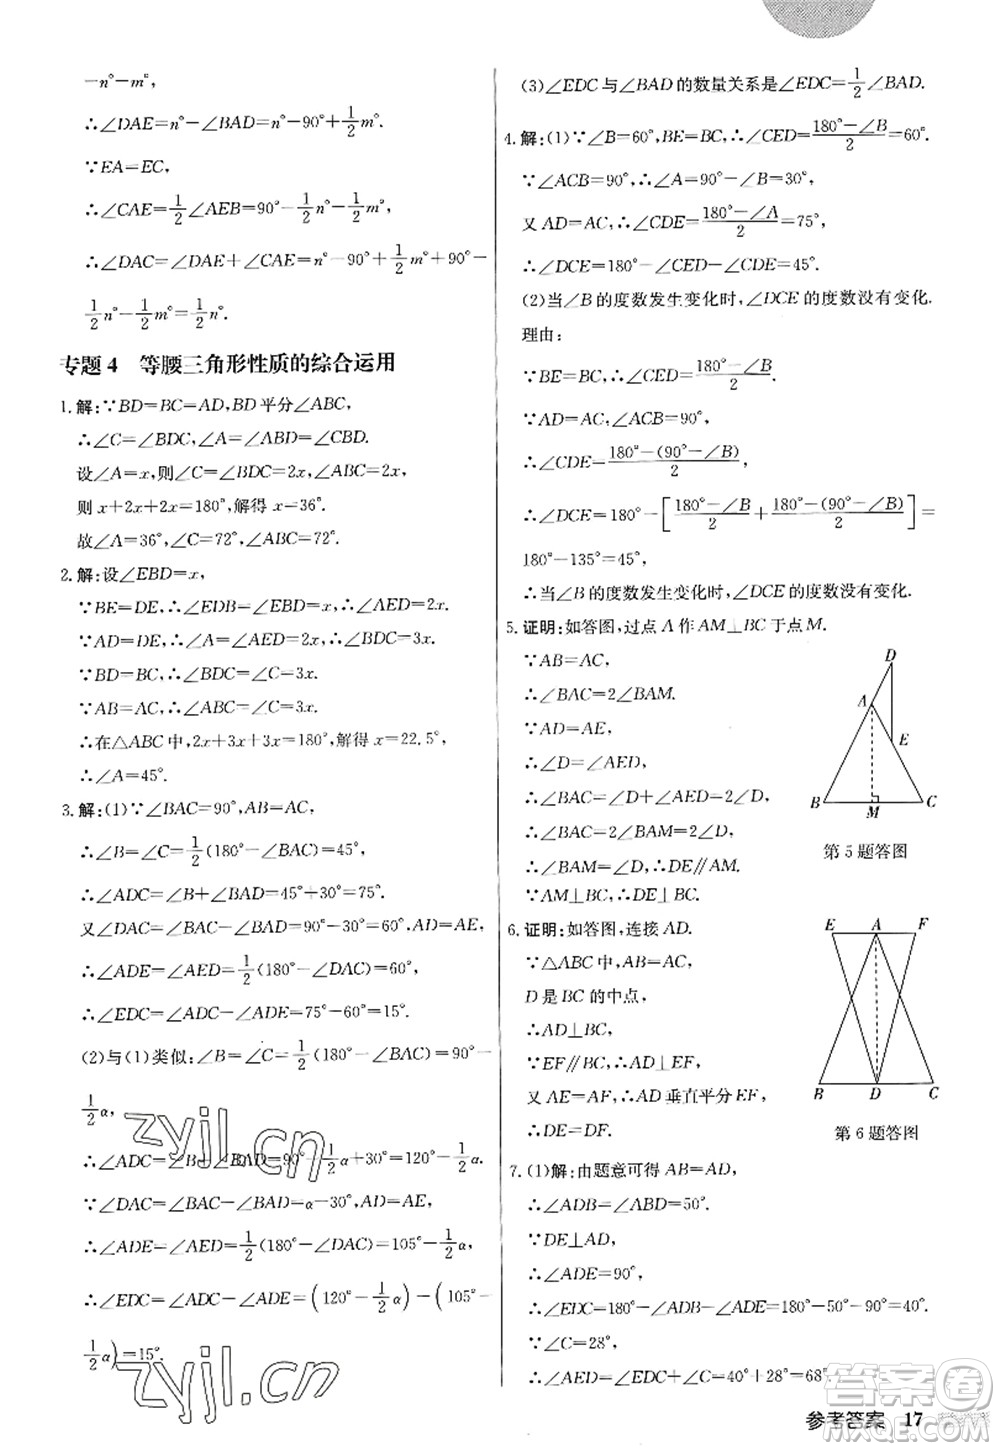 －n°－m°，
∴∠DAE＝n°－∠BAD＝n°－90°＋1/2 m°．
∵EA＝EC，
∴∠CAE＝1/2∠AEB＝90°－1/2 n°－1/2 m°，
∴∠DAC＝∠DAE＋∠CAE＝n°－90°＋1/2 m°＋90°－
1/2 n°－1/2 m°＝1/2 n°．
专题4 等腰三角形性质的综合运用
1.解：∵BD＝BC＝AD，BD平分∠ABC，
∴∠C＝∠BDC，∠A＝∠ABD＝∠CBD．
设∠A＝x，则∠C＝∠BDC＝2x，∠ABC＝2x，
则x＋2x＋2x＝180°，解得x＝36°．
故∠A＝36°，∠C＝72°，∠ABC＝72°．
2.解：设∠EBD＝x，
∵BE＝DE，∴∠EDB＝∠EBD＝x，∴∠AED＝2x．
∵AD＝DE，∴∠A＝∠AED＝2x，∴∠BDC＝3x．
∵BD＝BC，∴∠C＝∠BDC＝3x．
∵AB＝AC，∴∠ABC＝∠C＝3x．
∴在△ABC中，2x＋3x＋3x＝180°，解得x＝22.5°，
∴∠A＝45°．
3.解：(1)∵∠BAC＝90°，AB＝AC，
∴∠B＝∠C＝1/2(180°－∠BAC)＝45°，
∴∠ADC＝∠B＋∠BAD＝45°＋30°＝75°．
又∠DAC＝∠BAC－∠BAD＝90°－30°＝60°，AD＝AE，
∴∠ADE＝∠AED＝1/2(180°－∠DAC)＝60°，
∴∠EDC＝∠ADC－∠ADE＝75°－60°＝15°．
(2)与(1)类似：∠B＝∠C＝1/2(180°－∠BAC)＝90°－
1/2 α，
∴∠ADC＝∠B＋∠BAD＝90°－1/2 α＋30°＝120°－1/2 α．
∵∠DAC＝∠BAC－∠BAD＝α－30°，
∴∠ADE＝∠AED＝1/2(180°－∠DAC)＝105°－1/2 α，
∴∠EDC＝∠ADC－∠ADE＝(120°－1/2 α)－(105°－
1/2 α)＝15°．
(3)∠EDC与∠BAD的数量关系是∠EDC＝1/2∠BAD．
4.解：(1)∵∠B＝60°，BE＝BC，∴∠CED＝(180°－∠B)/2＝60°．
∵∠ACB＝90°，∴∠A＝90°－∠B＝30°，
又AD＝AC，∴∠CDE＝(180°－∠A)/2＝75°，
∴∠DCE＝180°－∠CED－∠CDE＝45°．
(2)当∠B的度数发生变化时，∠DCE的度数没有变化．
理由：
∵BE＝BC，∴∠CED＝(180°－∠B)/2．
∵AD＝AC，∠ACB＝90°，
∴∠CDE＝[180°－(90°－∠B)]/2，
∴∠DCE＝180°－[(180°－∠B)/2＋(180°－(90°－∠B))/2]＝
180°－135°＝45°，
∴当∠B的度数发生变化时，∠DCE的度数没有变化．
5.证明：如答图，过点A作AM⊥BC于点M．
∵AB＝AC，
∴∠BAC＝2∠BAM．
∵AD＝AE，
∴∠D＝∠AED，
∴∠BAC＝∠D＋∠AED＝2∠D，
∴∠BAC＝2∠BAM＝2∠D，
∴∠BAM＝∠D，∴DE∥AM．
∵AM⊥BC，∴DE⊥BC．
D
A
E
B
M
C
第5题答图
6.证明：如答图，连接AD．
∵△ABC中，AB＝AC，
D是BC的中点，
∴AD⊥BC．
∵EF∥BC，∴AD⊥EF．
又AE＝AF，∴AD垂直平分EF，
∴DE＝DF．
E A F
B D C
第6题答图
7.(1)解：由题意可得AB＝AD，
∴∠ADB＝∠ABD＝50°．
∵DE⊥AD，
∴∠ADE＝90°，
∴∠EDC＝180°－∠ADB－∠ADE＝180°－50°－90°＝40°．
∵∠C＝28°，
∴∠AED＝∠EDC＋∠C＝40°＋28°＝68°．
参考答案 17
zyjl.cn
zyjl.cn
答案圈